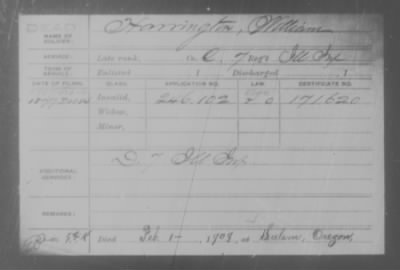 DEAD
NAME OF SOLDIER: Harrington, William
SERVICE: Late rank, Co. C, 7 Reg't Ill Inf
TERM OF SERVICE: Enlisted , 1 Discharged , 1
DATE OF FILING. CLASS. APPLICATION NO. LAW. CERTIFICATE NO.
Invalid, 246.102 171.620
Widow,
Minor,
ADDITIONAL SERVICES: D. 7 Ill Inf
REMARKS:
Died Feb 1 - , 1909, at Salem, Oregon,